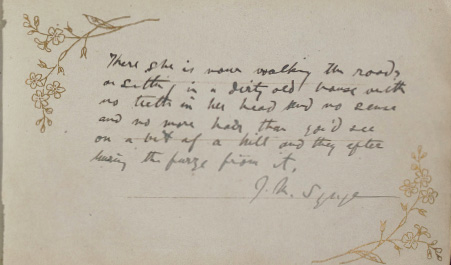 There she is now walking the roads
or sitting in a dirty old house with
no teeth in her head and no sense
and no more hair than you'd see
on a bit of a hill and they after
burning the furze from it.
J. M. Synge